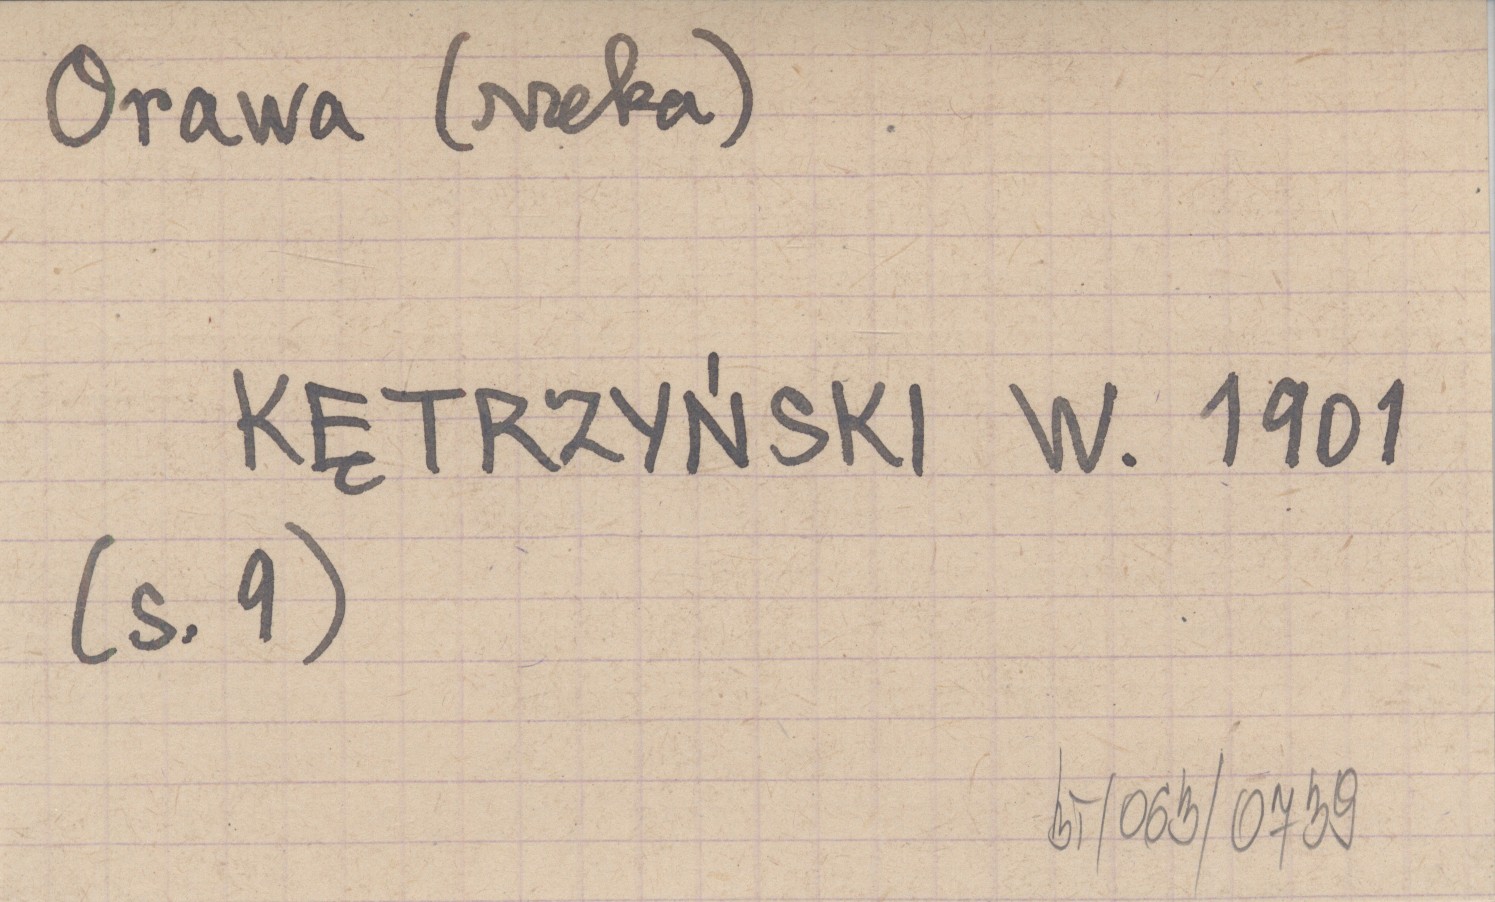 Orawa (rzeka)
KĘTRZYŃSKI W. 1901
(s. 9)
/063/0739